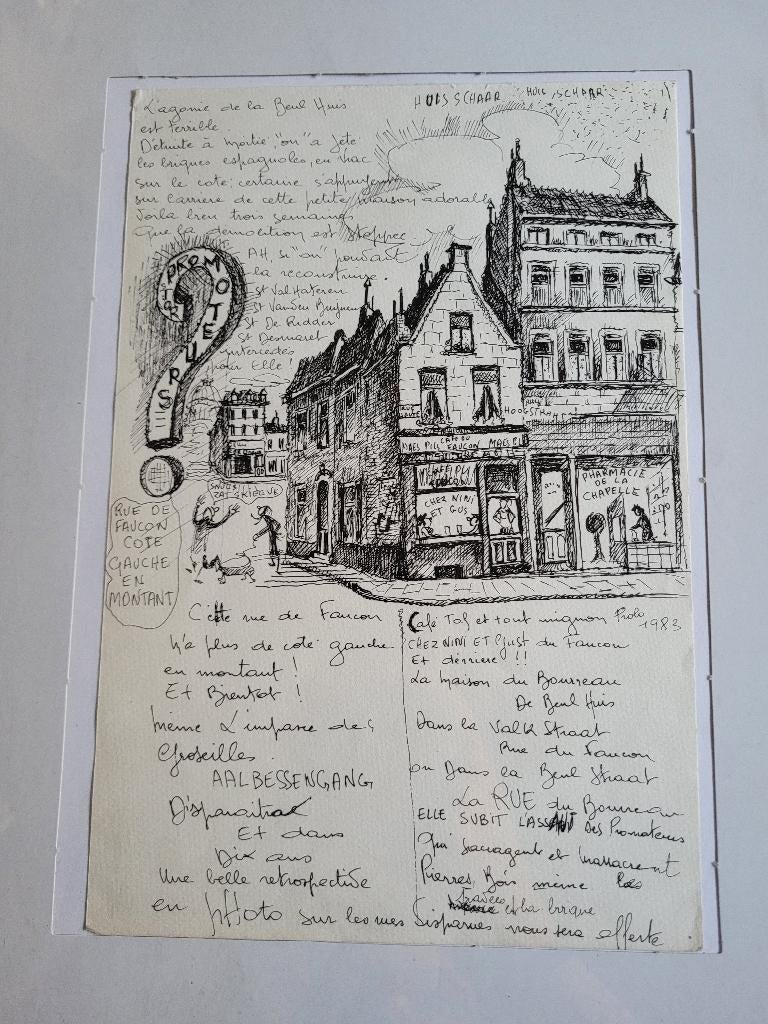 L'agonie de la Beul Huis
est terrible.
Détruite à moitié, "on" a jeté
les briques espagnoles, en vrac
sur le coté; certaine s'appuient
sur l'arriere de cette petite maison adorable
Voila bien trois semaines
Que la démolition est stoppée
AH, si "on" pouvait
la reconstruire.
St Val Hateren
St Vanden Bruynen
St De Ridder
St Desmaret
intercedés
pour Elle!
HUIS SCHAAR HUIS SCHAAR
STOP PROMOTEURS
RUE HAUTE
HOOGSTRAAT
CAFE DU
MAES PILS FAUCON MAES PILS
CHEZ NINI
ET GUS
PHARMACIE
DE LA
CHAPELLE
RUE DE
FAUCON
COTE
GAUCHE
EN
MONTANT
Cette rue de Faucon
N'a plus de coté gauche
en montant!
Et Bientot!
même L'impasse des
Groseilles.
AALBESSENGANG
Disparaitra
Et dans
Dix ans
Une belle retrospective
en pHoto sur les rues Disparues nous sera offerte
Café Tof et tout mignon Prolo 1983
CHEZ NINI ET Gust du Faucon
Et dérriere!!
La maison du Bourreau
De Beul Huis
Dans la Valk Straat
Rue du Faucon
ou Dans la Beul Straat
La RUE du Bourreau
ELLE SUBIT L'ASSAUT Des Promoteurs
Qui saccagent et massacrent
Pierres, Bois même les
travées et la brique